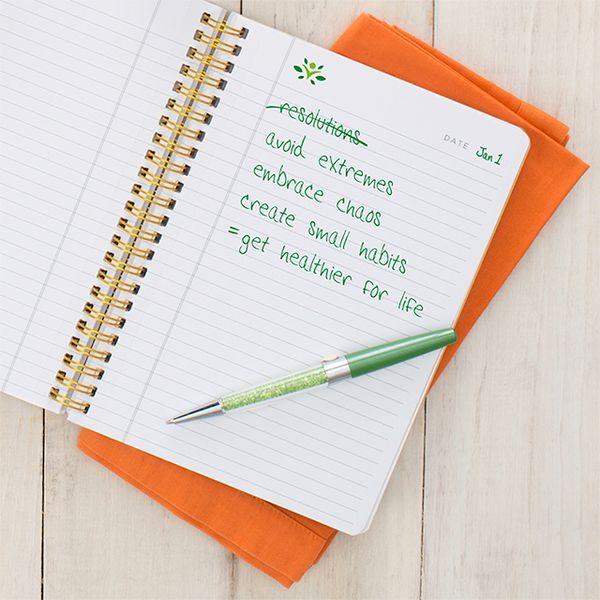 resolutions
DATE Jan 1
avoid extremes
embrace chaos
create small habits
=get healthier for life